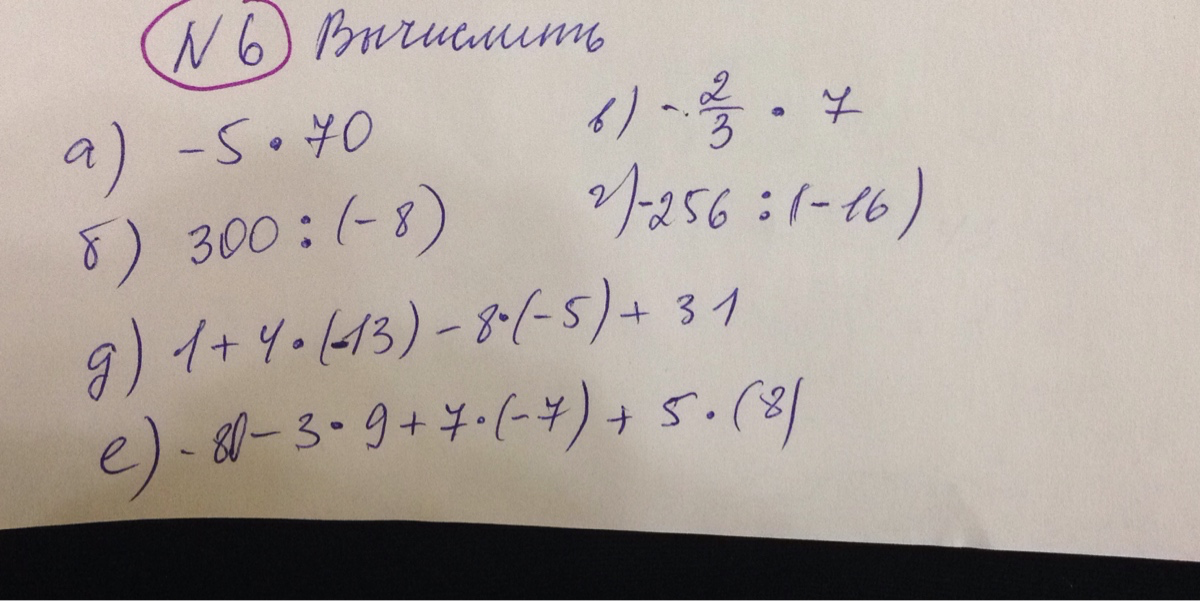 N 6 Вычислить
а) -5 · 70
в) - 2/3 · 7
б) 300 : (-8)
г) -256 : (-16)
д) 1 + 4 · (-13) - 8 · (-5) + 31
е) - 80 - 3 · 9 + 7 · (-7) + 5 · (8)